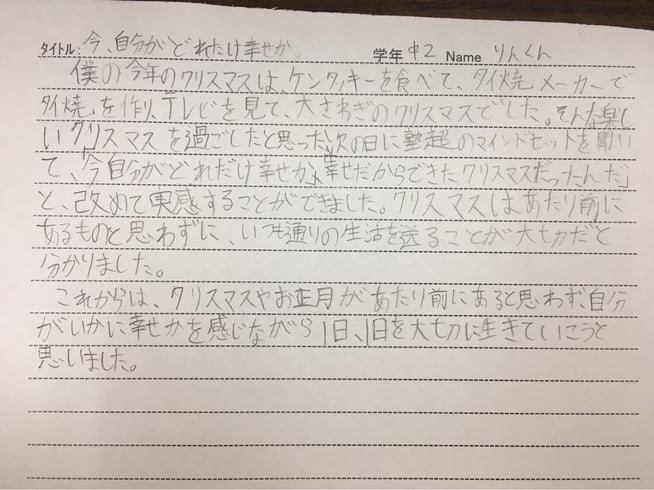 タイトル: 今、自分がどれだけ幸せか。 学年 中2 Name りんくん
僕の今年のクリスマスは、ケンタッキーを食べて、タイ焼メーカーで
タイ焼を作り、テレビを見て、大さわぎのクリスマスでした。そんな楽し
いクリスマスを過ごしたと思った次の日に塾超のマインドセットを聞い
て、「今自分がどれだけ幸せか、幸せだからできたクリスマスだったんだ」
と、改めて実感することができました。クリスマスはあたり前に
あるものと思わずに、いつも通りの生活を送ることが大切だと
分かりました。
これからは、クリスマスやお正月があたり前にあると思わず、自分
がいかに幸せかを感じながら1日、1日を大切に生きていこうと
思いました。